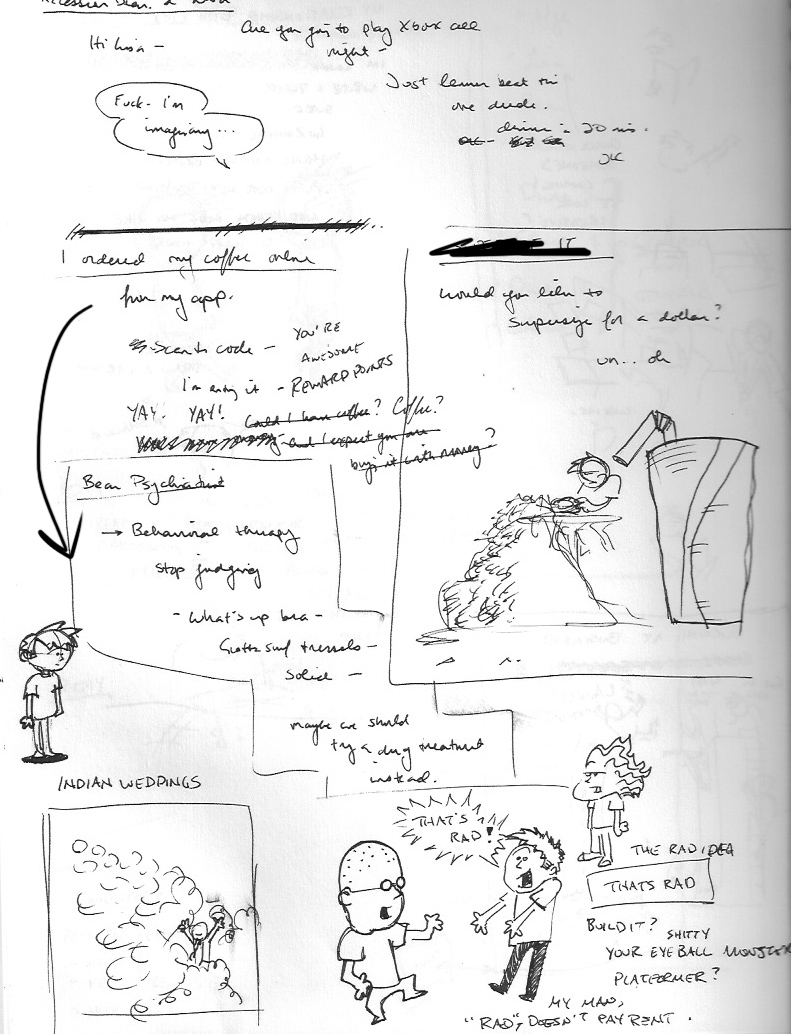 Hi
Are you going to play Xbox all
night -
Fuck - I'm
imagining...
Just lemme beat this
one dude.
dinner in 20 min.
JK
I ordered my coffee online
from my app.
Scan the code -
YOU'RE
AWESOME
REWARD POINTS
YAY! YAY! Could I have coffee? Coffee?
and I expect you are
buying it with money?
IT
would you like to
supersize for a dollar?
un... oh
Bean Psychiatrist
→ Behavioral therapy
stop judging
- What's up bra -
Gotta surf
maybe we should
try a drug treatment
instead.
INDIAN WEDDINGS
THAT'S
RAD!
THE RAD IDEA
THATS RAD
BUILD IT?
SHITTY
YOUR EYEBALL MONSTER
PLATFORMER?
MY MAN,
"RAD", DOESN'T PAY RENT.